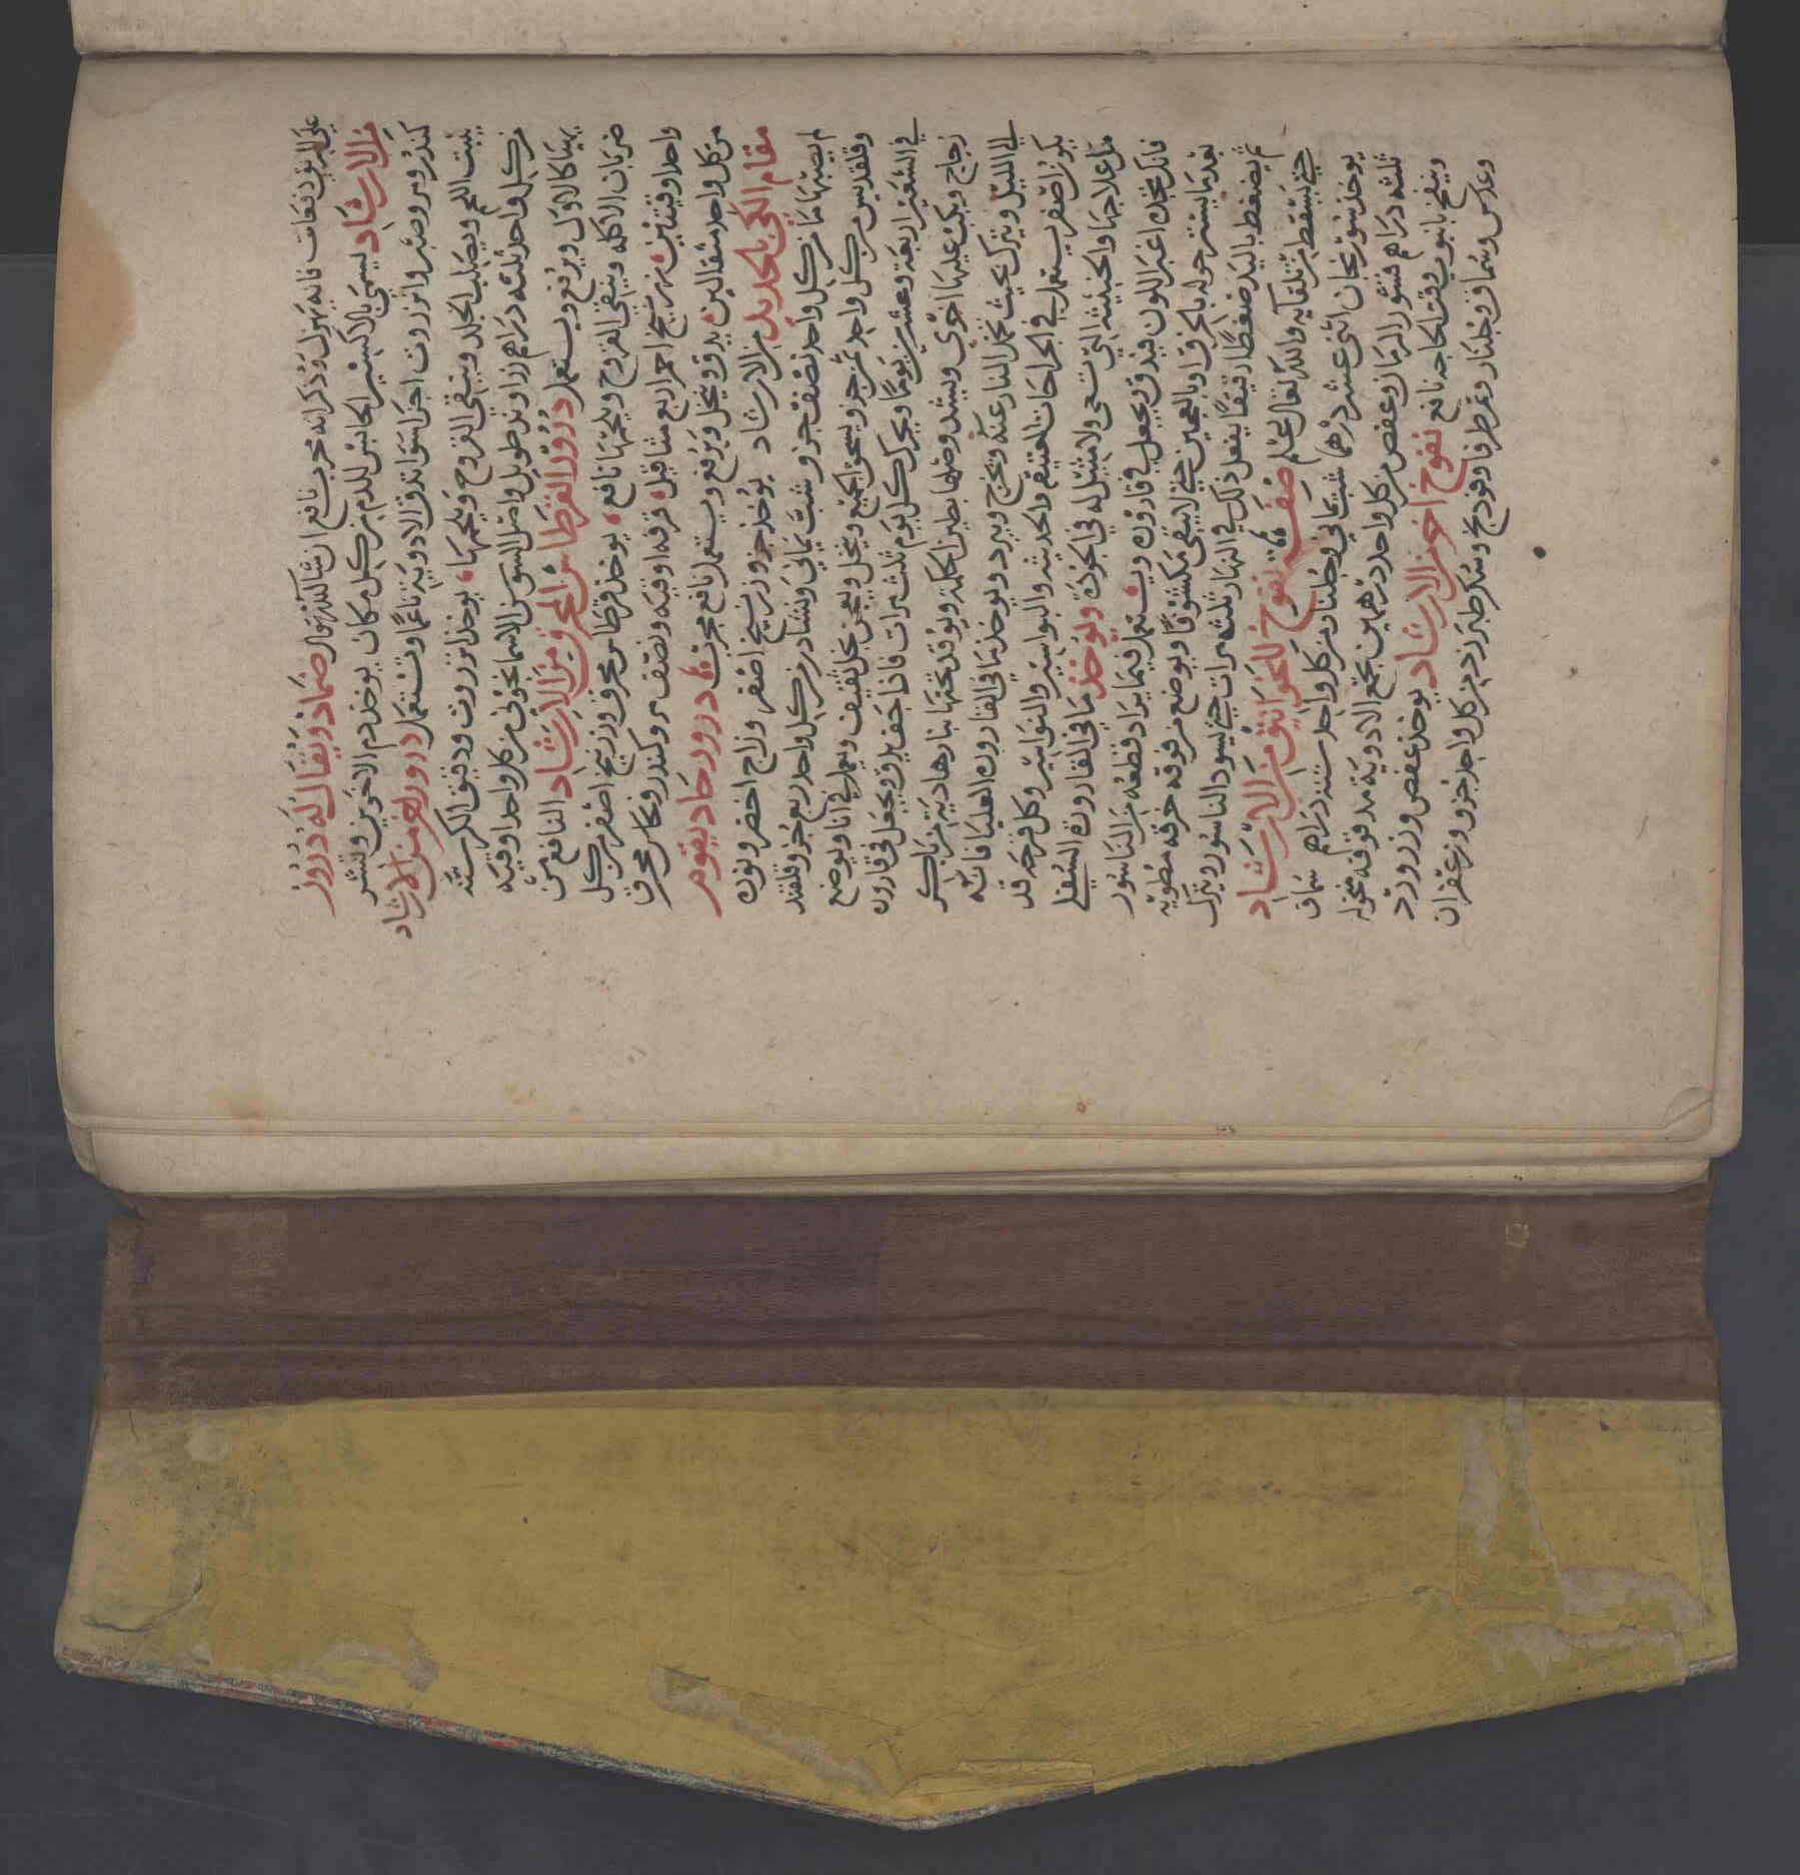 على الريق دفعات فانه يهزل وذكر انه مجرب نافع ان شا الله تعالى ضماد ويقال له درور
من الارشاد يسمى بالاكسير الحابس للدم من كل مكان يوخذ دم الاخوين وقشر
كندر ومر وصبر وانزروت اجزا سوا تدق الادوية ناعما وتستعمل درور اخر من الارشاد
ينبت اللحم ويصلب الجلد وينقي القروح ويلحمها يوخذ انزروت ودقيق الكرسنه
من كل واحد ثلثه دراهم زراوند طويل واصل السوسن الاسمانجوني من كل واحد اوقيه
يهيا كالاول ويرفع ويستعمل درور القرطاس المحرق من الارشاد النافع من
ضربان الاكله وينقي القروح ويلحمها نافع يوخذ قرطاس محرق وزرنيخ اصفر من كل
واحد اوقيتين زرنيخ احمر اربع مثاقيل قرفه اوقيه ونصف مر وكندر ونحاس محرق
من كل واحد مثقالين يدق وينخل ويرفع ويستعمل نافع مجرب درور حاد يقوم
مقام الكي بالحديد من الارشاد يوخذ جزو زرنيخ اصفر وزاج اخضر ونوره
لم يصبها ما من كل واحد نصف جزو شب يماني ونشادر من كل واحد ربع جزو قلقند
وقلقديس من كل واحد ثمن جزو يسحق الجميع وينخل ويعجن بخل ثقيف ويعمل في انا ويوضع
في الشعير اربعة وعشرين يوما ويحرك كل يوم ثلث مرات فاذا جف يدق ويجعل في قاروره
زجاج ويكب عليها اخرى ويشد وصلها بطين الحكمة ويوقد تحتها بنار هادية من باكر
الى الليل ويترك بحيث تخمد النار عنه ويخرج ويبرد ويوخذ ما في القاروره العليا فانه
يكون اصفر يستعمل في الجراحات العتيقه والحديثه والبواسير والنواسير وكل قرحه قد
مل علاجها والخبيثه التي تسعى ولا مثيل له في الجودة ويوخذ ما في القاروره السفلى
فانك تجده اغبر اللون فيدق ويجعل في قاروره ويستعمل فيما يراد قطعه من الناسور
بعد ما يستر حوله بالخرق او بالعجين حتى لا يبقى مكشوفا ويوضع من فوقه خرقه مطويه
ثم يضغط باليد ضغطا رقيقا يفعل ذلك في النهار ثلثه مرات حتى يسود الناسور ويترك
حتى يسقط من تلقايه والله تعالى اعلم صفه نفوخ للخوانيق من الارشاد
يوخذ سورنجان اثنى عشر درهما شب يماني وجلنار من كل واحد سته دراهم سماق
ثلثه دراهم قشور الرمان وعفص من كل واحد درهمين تجمع الادوية مدقوقه منخوله
وينفخ بانبوب وقت الحاجه نافع نفوخ اخر من الارشاد يوخذ عفص وزرورد
وعدس وسماق وجلنار وثمر طرفا وفوذنج وسكر طبرزد من كل واحد جزو وزعفران